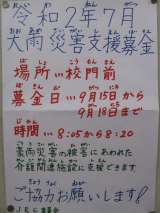 令和2年7月
大雨災害支援募金
場所…校門前
募金日…9月15日から
9月18日まで
時間…8:05から8:20
豪雨災害の被害にあわれた
介護関連施設に支援できます
ご協力お願いします!